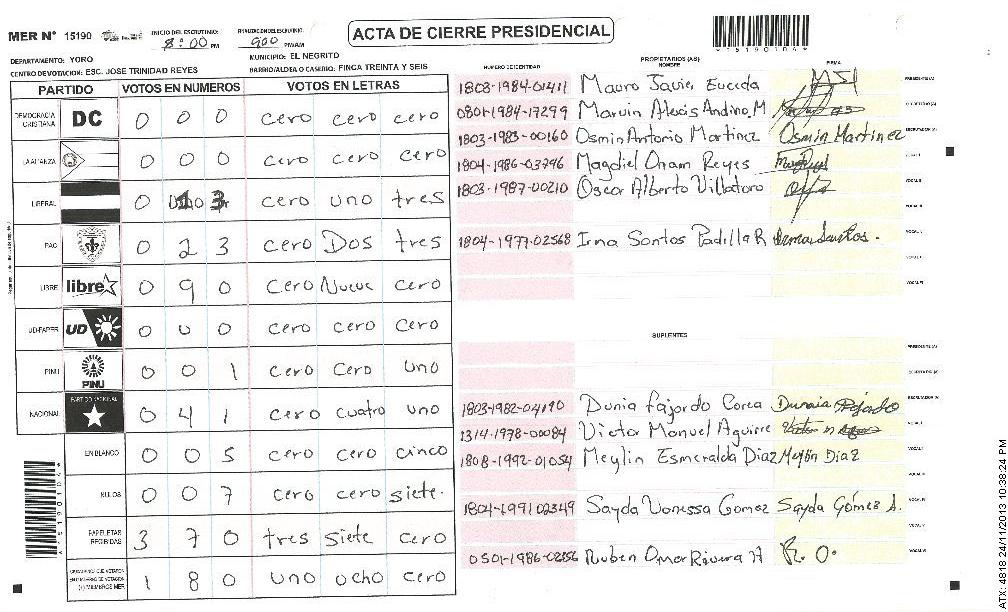 MER Nº 15190
INICIO DEL ESCRUTINIO: 8:00 PM
FINALIZACION DEL ESCRUTINIO: 900 PM/AM
ACTA DE CIERRE PRESIDENCIAL
*5190104*
DEPARTAMENTO: YORO
MUNICIPIO: EL NEGRITO
CENTRO DE VOTACION: ESC. JOSE TRINIDAD REYES
BARRIO/ALDEA O CASERIO: FINCA TREINTA Y SEIS
PARTIDO VOTOS EN NUMEROS VOTOS EN LETRAS
DEMOCRACIA CRISTIANA DC 0 0 0 cero cero cero
LA ALIANZA 0 0 0 cero cero cero
LIBERAL 0 1 3 cero uno tres
PAC 0 2 3 cero Dos tres
LIBRE libre 0 9 0 cero Nueve cero
UD-FAPER UD 0 0 0 cero cero cero
PINU PINU 0 0 1 cero cero uno
NACIONAL PARTIDO NACIONAL 0 4 1 cero cuatro uno
EN BLANCO 0 0 5 cero cero cinco
NULOS 0 0 7 cero cero siete.
PAPELETAS RECIBIDAS 3 7 0 tres siete cero
1 8 0 uno ocho cero
*5190104*
PROPIETARIOS (AS)
NUMERO DE IDENTIDAD NOMBRE FIRMA
1808-1984-01411 Mauro Javier Euceda MJE PRESIDENTE (A)
0801-1984-17299 Marvin Alexis Andino.M SECRETARIO (A)
1803-1983-00160 Osmin Antonio Martinez Osmin Martinez ESCRUTADOR (A)
1804-1986-03796 Magdiel Onam Reyes VOCAL I
1803-1987-00210 Oscar Alberto Villatoro VOCAL II
VOCAL III
1804-1977-02568 Irma Santos Padilla R Irma Santos.
SUPLENTES
PRESIDENTE (A)
SECRETARIO (A)
1803-1982-04190 Dunia fajardo Corea Dunia Fajardo ESCRUTADOR (A)
1314-1978-00084 Victor Manuel Aguirre VOCAL I
1808-1992-01054 Meylin Esmeralda Diaz Meylin Diaz
1804-1991 02349 Sayda Vanessa Gomez Sayda Gómez A.
0501-1986-02356 Ruben Omar Rivera H R. O.
ATX: 4818 24/11/2013 10:38:24 PM